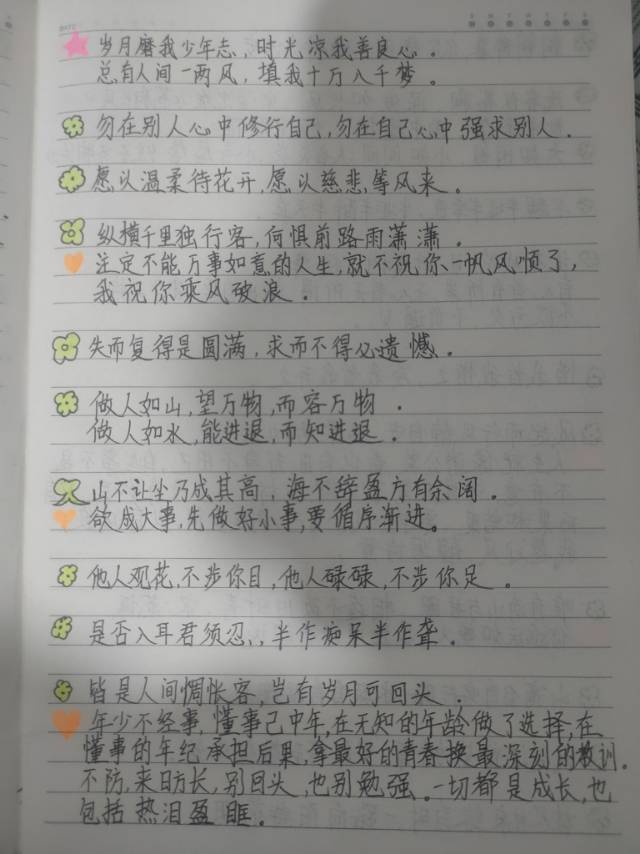 岁月磨我少年志，时光凉我善良心。
总有人间一两风，填我十万八千梦。
勿在别人心中修行自己，勿在自己心中强求别人。
愿以温柔待花开，愿以慈悲等风来。
纵横千里独行客，何惧前路雨潇潇。
注定不能万事如意的人生，就不祝你一帆风顺了，
我祝你乘风破浪。
失而复得是圆满，求而不得必遗憾。
做人如山，望万物，而容万物。
做人如水，能进退，而知进退。
山不让尘乃成其高，海不辞盈方有余阔。
欲成大事，先做好小事，要循序渐进。
他人观花，不步你目，他人碌碌，不步你足。
是否入耳君须忍，，半作痴呆半作聋。
皆是人间惆怅客，岂有岁月可回头。
年少不经事，懂事已中年，在无知的年龄做了选择，在
懂事的年纪承担后果，拿最好的青春换最深刻的教训。
不防，来日方长，别回头，也别勉强。一切都是成长，也
包括热泪盈眶。